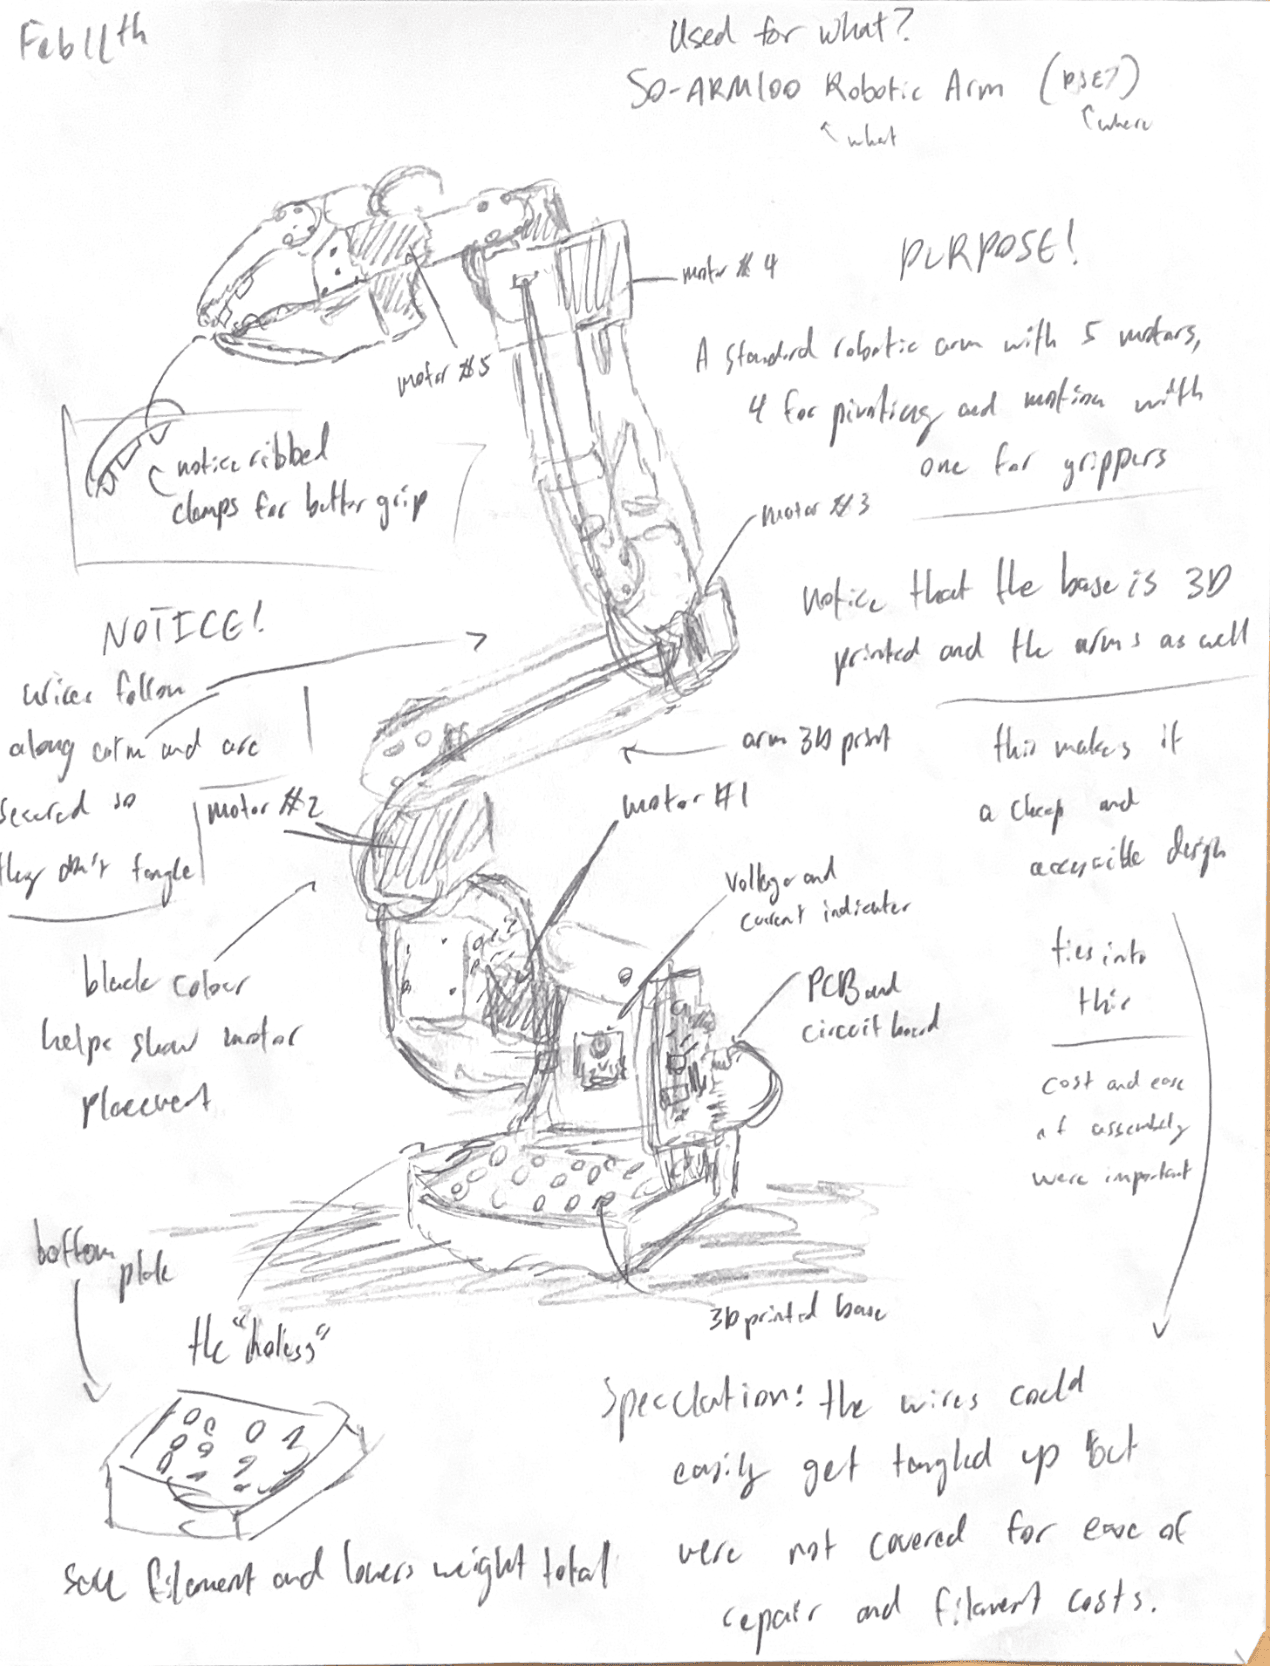 Feb 11th
Used for what?
SO-ARM100 Robotic Arm
what
where
PURPOSE!
motor #4
A standard robotic arm with 5 motors,
4 for pivoting and motion with
one for grippers
motor #5
notice ribbed
clamps for better grip
motor #3
notice that the base is 3D
printed and the arms as well
NOTICE!
wires follow
along arm and are
secured so
they don't tangle
arm 3D print
this makes it
a cheap and
accessible design
motor #2
motor #1
Voltage and
current indicator
black colour
helps show motor
placement
PCB and
circuit board
ties into
this
cost and ease
of assembly
were important
bottom
plate
the "holes"
3D printed base
Speculation: the wires could
easily get tangled up but
were not covered for ease of
repair and filament costs.
filament and lowers weight total